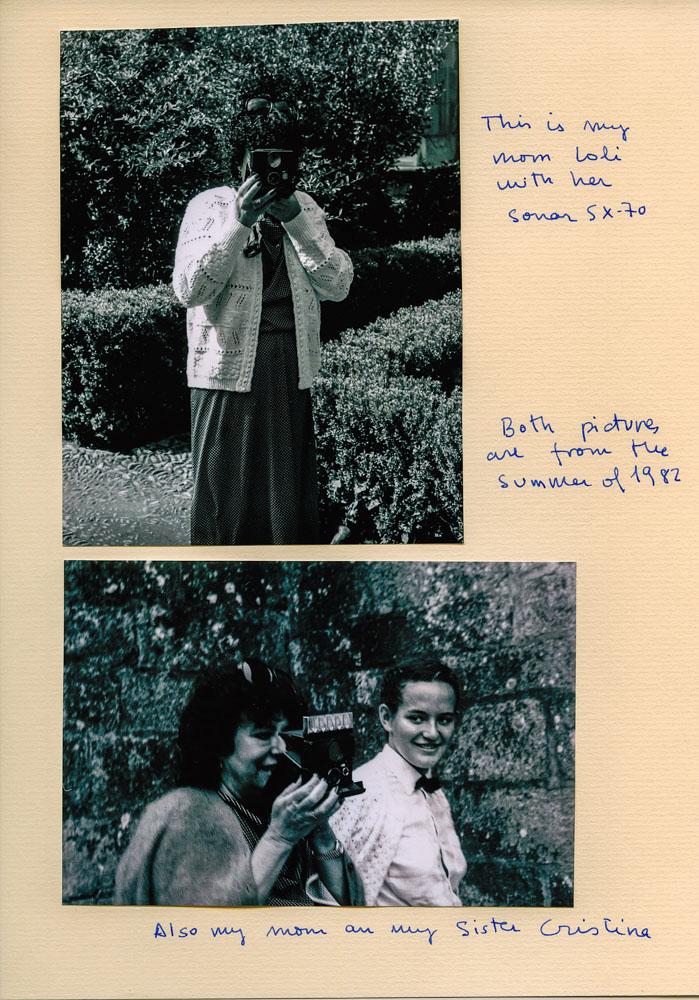 This is my
mom Loli
with her
sonar SX-70
Both pictures
are from the
summer of 1982
Also my mom an my Sister Cristina